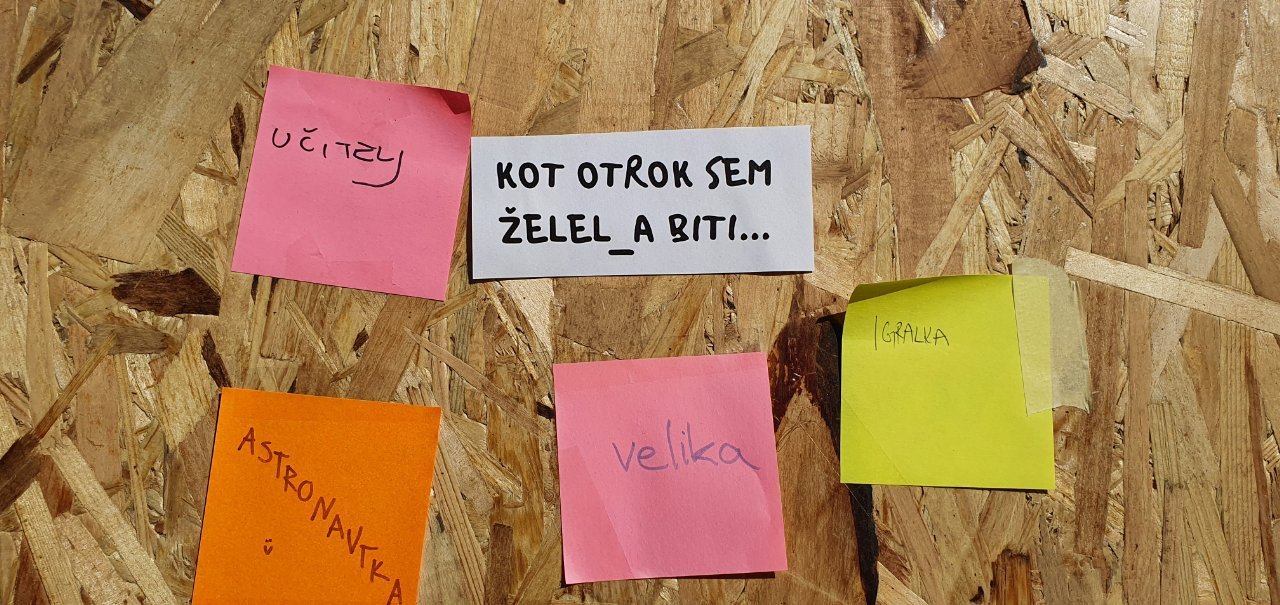 UČITELJ
KOT OTROK SEM
ŽELEL_A BITI...
IGRALKA
velika
ASTRONAVTKA